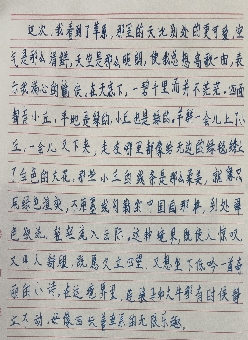 这次，我看到了草原，那里的天比别处的更可爱，空
气是那么清鲜，天空是那么明朗，使我总想高歌一曲，表
示我满心的愉快。在天底下，一碧千里而并不茫茫。四面
都有小丘，平地是绿的，小丘也是绿的。羊群一会儿上了小
丘，一会儿又下来，走在哪里都像给无边的绿毯绣上
了白色的大花。那些小丘的线条是那么柔美，就像只
用绿色渲染，不用墨线勾勒的中国画那样，到处翠
色欲流，轻轻流入云际。这种境界，既使人惊叹，
又叫人舒服，既愿久立四望，又想坐下低吟一首奇
丽的小诗。在这境界里，连骏马和大牛都有时候静
立不动，好像回味着草原的无限乐趣。